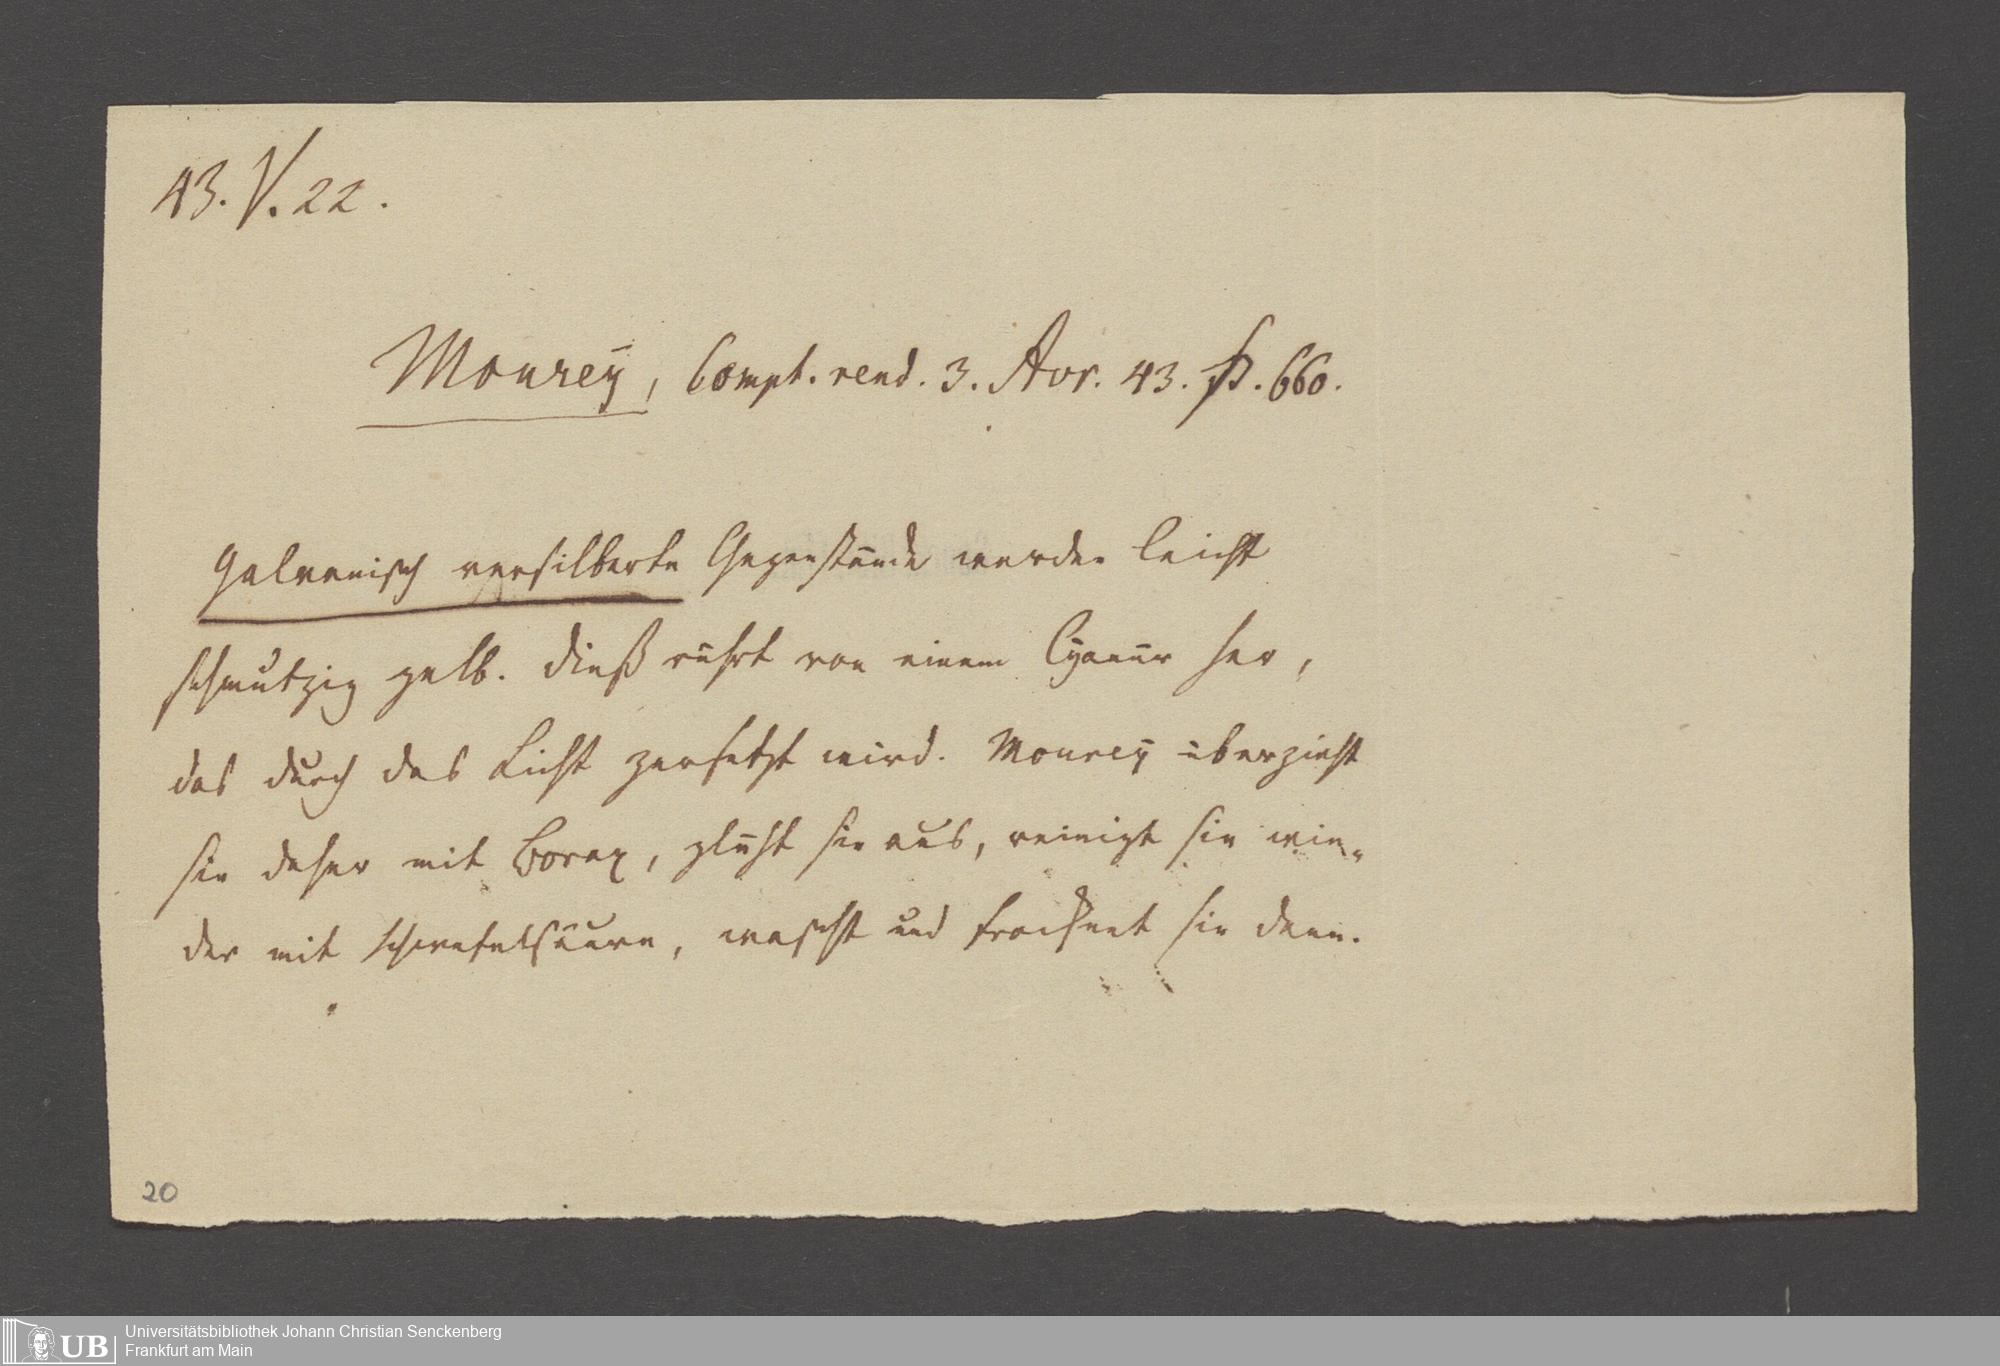 43. V. 22.
Mourey, Compt. rend. 3. Avr. 43. P. 660.
Galvanisch versilberte Gegenstände werden leicht
schmutzig gelb. dieß rührt von einem Cyanür her,
das durch das Licht zersetzt wird. Mourey überzieht
sie daher mit Borax, glüht sie aus, reinigt sie wie-
der mit Schwefelsäure, wascht und trocknet sie dann.
20
UB
Universitätsbibliothek Johann Christian Senckenberg
Frankfurt am Main